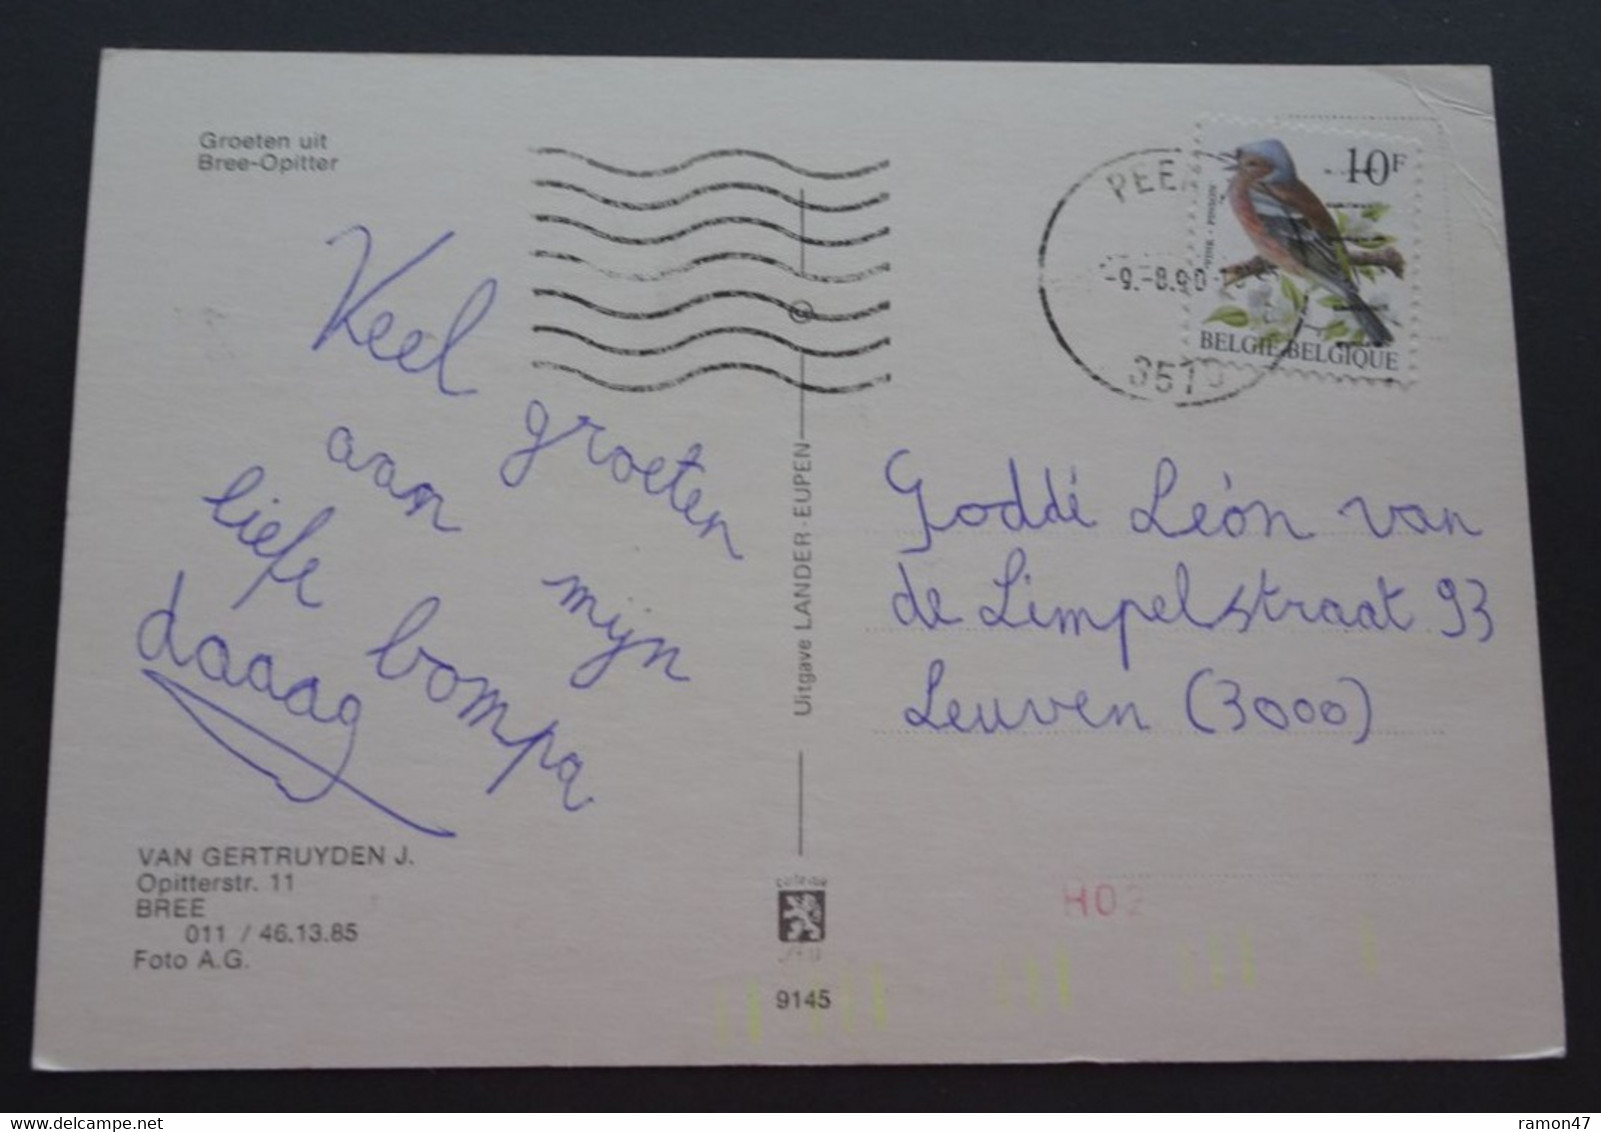 Groeten uit
Bree-Opitter
Keel groeten
aan mijn
liefe bompa
daaaag
VAN GERTRUYDEN J.
Opitterstr. 11
BREE
011 / 46.13.85
Foto A.G.
Uitgave LANDER-EUPEN
9145
PEE
-9.-8.90
3570
10F
VINK - PINSON
BELGIE-BELGIQUE
Goddé Léon van
de Limpelstraat 93
Leuven (3000)
H02
ramon47